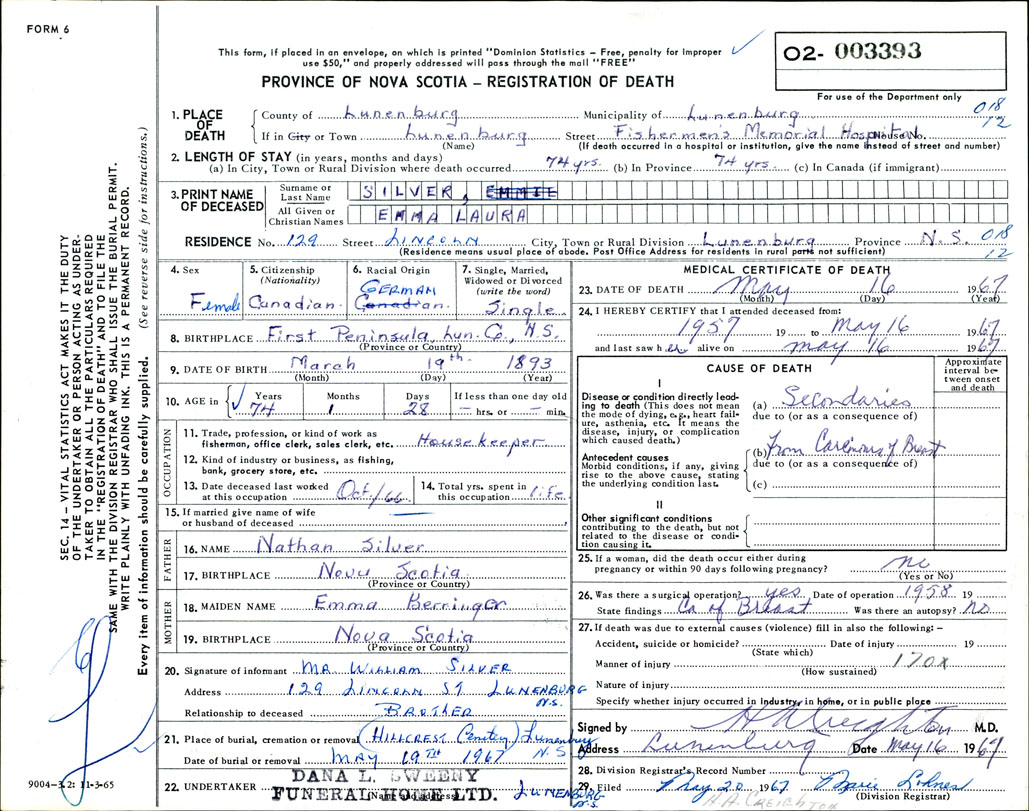 FORM 6
This form, if placed in an envelope, on which is printed "Dominion Statistics – Free, penalty for improper
use $50," and properly addressed will pass through the mail "FREE"
O2- 003393
PROVINCE OF NOVA SCOTIA – REGISTRATION OF DEATH
For use of the Department only
1. PLACE OF DEATH
County of Lunenburg Municipality of Lunenburg 018
If in City or Town Lunenburg Street Fishermen's Memorial Hospital House No. 12
(Name) (If death occurred in a hospital or institution, give the name instead of street and number)
2. LENGTH OF STAY (in years, months and days)
(a) In City, Town or Rural Division where death occurred 74 yrs. (b) In Province 74 yrs. (c) In Canada (if immigrant)
3. PRINT NAME OF DECEASED
Surname or Last Name SILVER, EMMIE
All Given or Christian Names EMMA LAURA
RESIDENCE No. 129 Street LINCOLN City, Town or Rural Division Lunenburg Province N.S. 018
(Residence means usual place of abode. Post Office Address for residents in rural parts not sufficient) 12
4. Sex
Female
5. Citizenship
(Nationality)
Canadian
6. Racial Origin
GERMAN
Canadian.
7. Single, Married,
Widowed or Divorced
(write the word)
Single
8. BIRTHPLACE First Peninsula, Lun. Co., N.S.
(Province or Country)
9. DATE OF BIRTH March 19th 1893
(Month) (Day) (Year)
10. AGE in
Years Months Days If less than one day old
74 1 28 – hrs. or – min.
OCCUPATION
11. Trade, profession, or kind of work as
fisherman, office clerk, sales clerk, etc. Housekeeper
12. Kind of industry or business, as fishing,
bank, grocery store, etc.
13. Date deceased last worked
at this occupation Oct/66
14. Total yrs. spent in
this occupation life
15. If married give name of wife
or husband of deceased
FATHER
16. NAME Nathan Silver
17. BIRTHPLACE Nova Scotia
(Province or Country)
MOTHER
18. MAIDEN NAME Emma Berringer
19. BIRTHPLACE Nova Scotia
(Province or Country)
20. Signature of informant MR WILLIAM SILVER
Address 129 LINCOLN ST LUNENBURG
N.S.
Relationship to deceased BROTHER
21. Place of burial, cremation or removal (HILLCREST Cemetery) Lunenburg
N S
Date of burial or removal MAY 19TH 1967
22. UNDERTAKER DANA L. SWEENY
FUNERAL HOME LTD. LUNENBURG
(Name and address) N.S.
MEDICAL CERTIFICATE OF DEATH
23. DATE OF DEATH May 16 1967
(Month) (Day) (Year)
24. I HEREBY CERTIFY that I attended deceased from:
1957 19 to May 16 1967
and last saw her alive on May 16 1967
CAUSE OF DEATH
Approximate
interval be-
tween onset
and death
I
Disease or condition directly lead-
ing to death (This does not mean
the mode of dying, e.g., heart fail-
ure, asthenia, etc. It means the
disease, injury, or complication
which caused death.)
(a) Secondaries
due to (or as a consequence of)
Antecedent causes
Morbid conditions, if any, giving
rise to the above cause, stating
the underlying condition last.
(b) From Carcinoma of Breast
due to (or as a consequence of)
(c)
II
Other significant conditions
contributing to the death, but not
related to the disease or condi-
tion causing it.
25. If a woman, did the death occur either during
pregnancy or within 90 days following pregnancy? no
(Yes or No)
26. Was there a surgical operation? yes Date of operation 1958 19
State findings Ca of Breast Was there an autopsy? no
27. If death was due to external causes (violence) fill in also the following: –
Accident, suicide or homicide? Date of injury 19
(State which)
Manner of injury 170x
(How sustained)
Nature of injury
Specify whether injury occurred in industry, in home, or in public place
Signed by H A Creighton M.D.
Address Lunenburg Date May 16 1967
28. Division Registrar's Record Number
29. Filed May 20 1967
(Division Registrar)
H.A. CREIGHTON
SEC. 14 – VITAL STATISTICS ACT MAKES IT THE DUTY
OF THE UNDERTAKER OR PERSON ACTING AS UNDER-
TAKER TO OBTAIN ALL THE PARTICULARS REQUIRED
IN THE "REGISTRATION OF DEATH" AND TO FILE THE
SAME WITH THE DIVISION REGISTRAR WHO SHALL ISSUE THE BURIAL PERMIT.
WRITE PLAINLY WITH UNFADING INK. THIS IS A PERMANENT RECORD.
Every item of information should be carefully supplied. (See reverse side for instructions.)
9004-3.2: 11-3-65